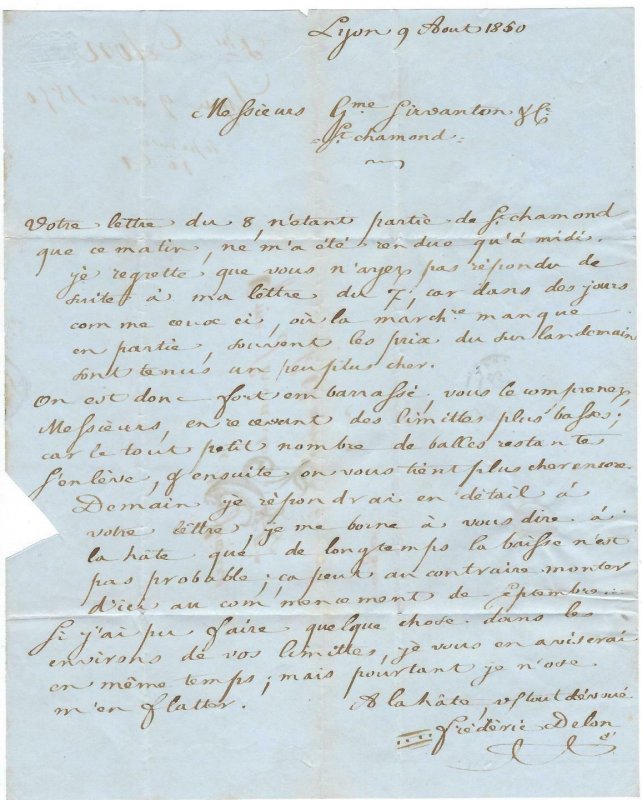 Lyon 9 Aout 1850
Messieurs Gme Sirvanton & Ce
St chamond
Votre lettre du 8, n'étant partie de St chamond
que ce matin, ne m'a été rendue qu'à midi.
je regrette que vous n'ayez pas répondu de
suite à ma lettre du 7, car dans des jours
comme ceux ci, où la march.se manque
en partie, souvent les prix du surlandemain
sont tenus un peu plus cher.
On est donc fort embarrassé, vous le comprenez
Messieurs, en recevant des limittes plus basses;
car le tout petit nombre de balles restantes
s'enlève, & ensuite on vous tient plus cher encore.
Demain je répondrai en détail à
votre lettre, je me borne à vous dire à
la hâte que de longtemps la baisse n'est
pas probable; ça peut au contraire monter
d'ici au commencement de Septembre...
Si j'ai pu faire quelque chose dans les
environs de vos limittes, je vous en aviserai
en même temps; mais pourtant je n'ose
m'en flatter.
A la hâte, v/ tout dévoué
frédéric Delon